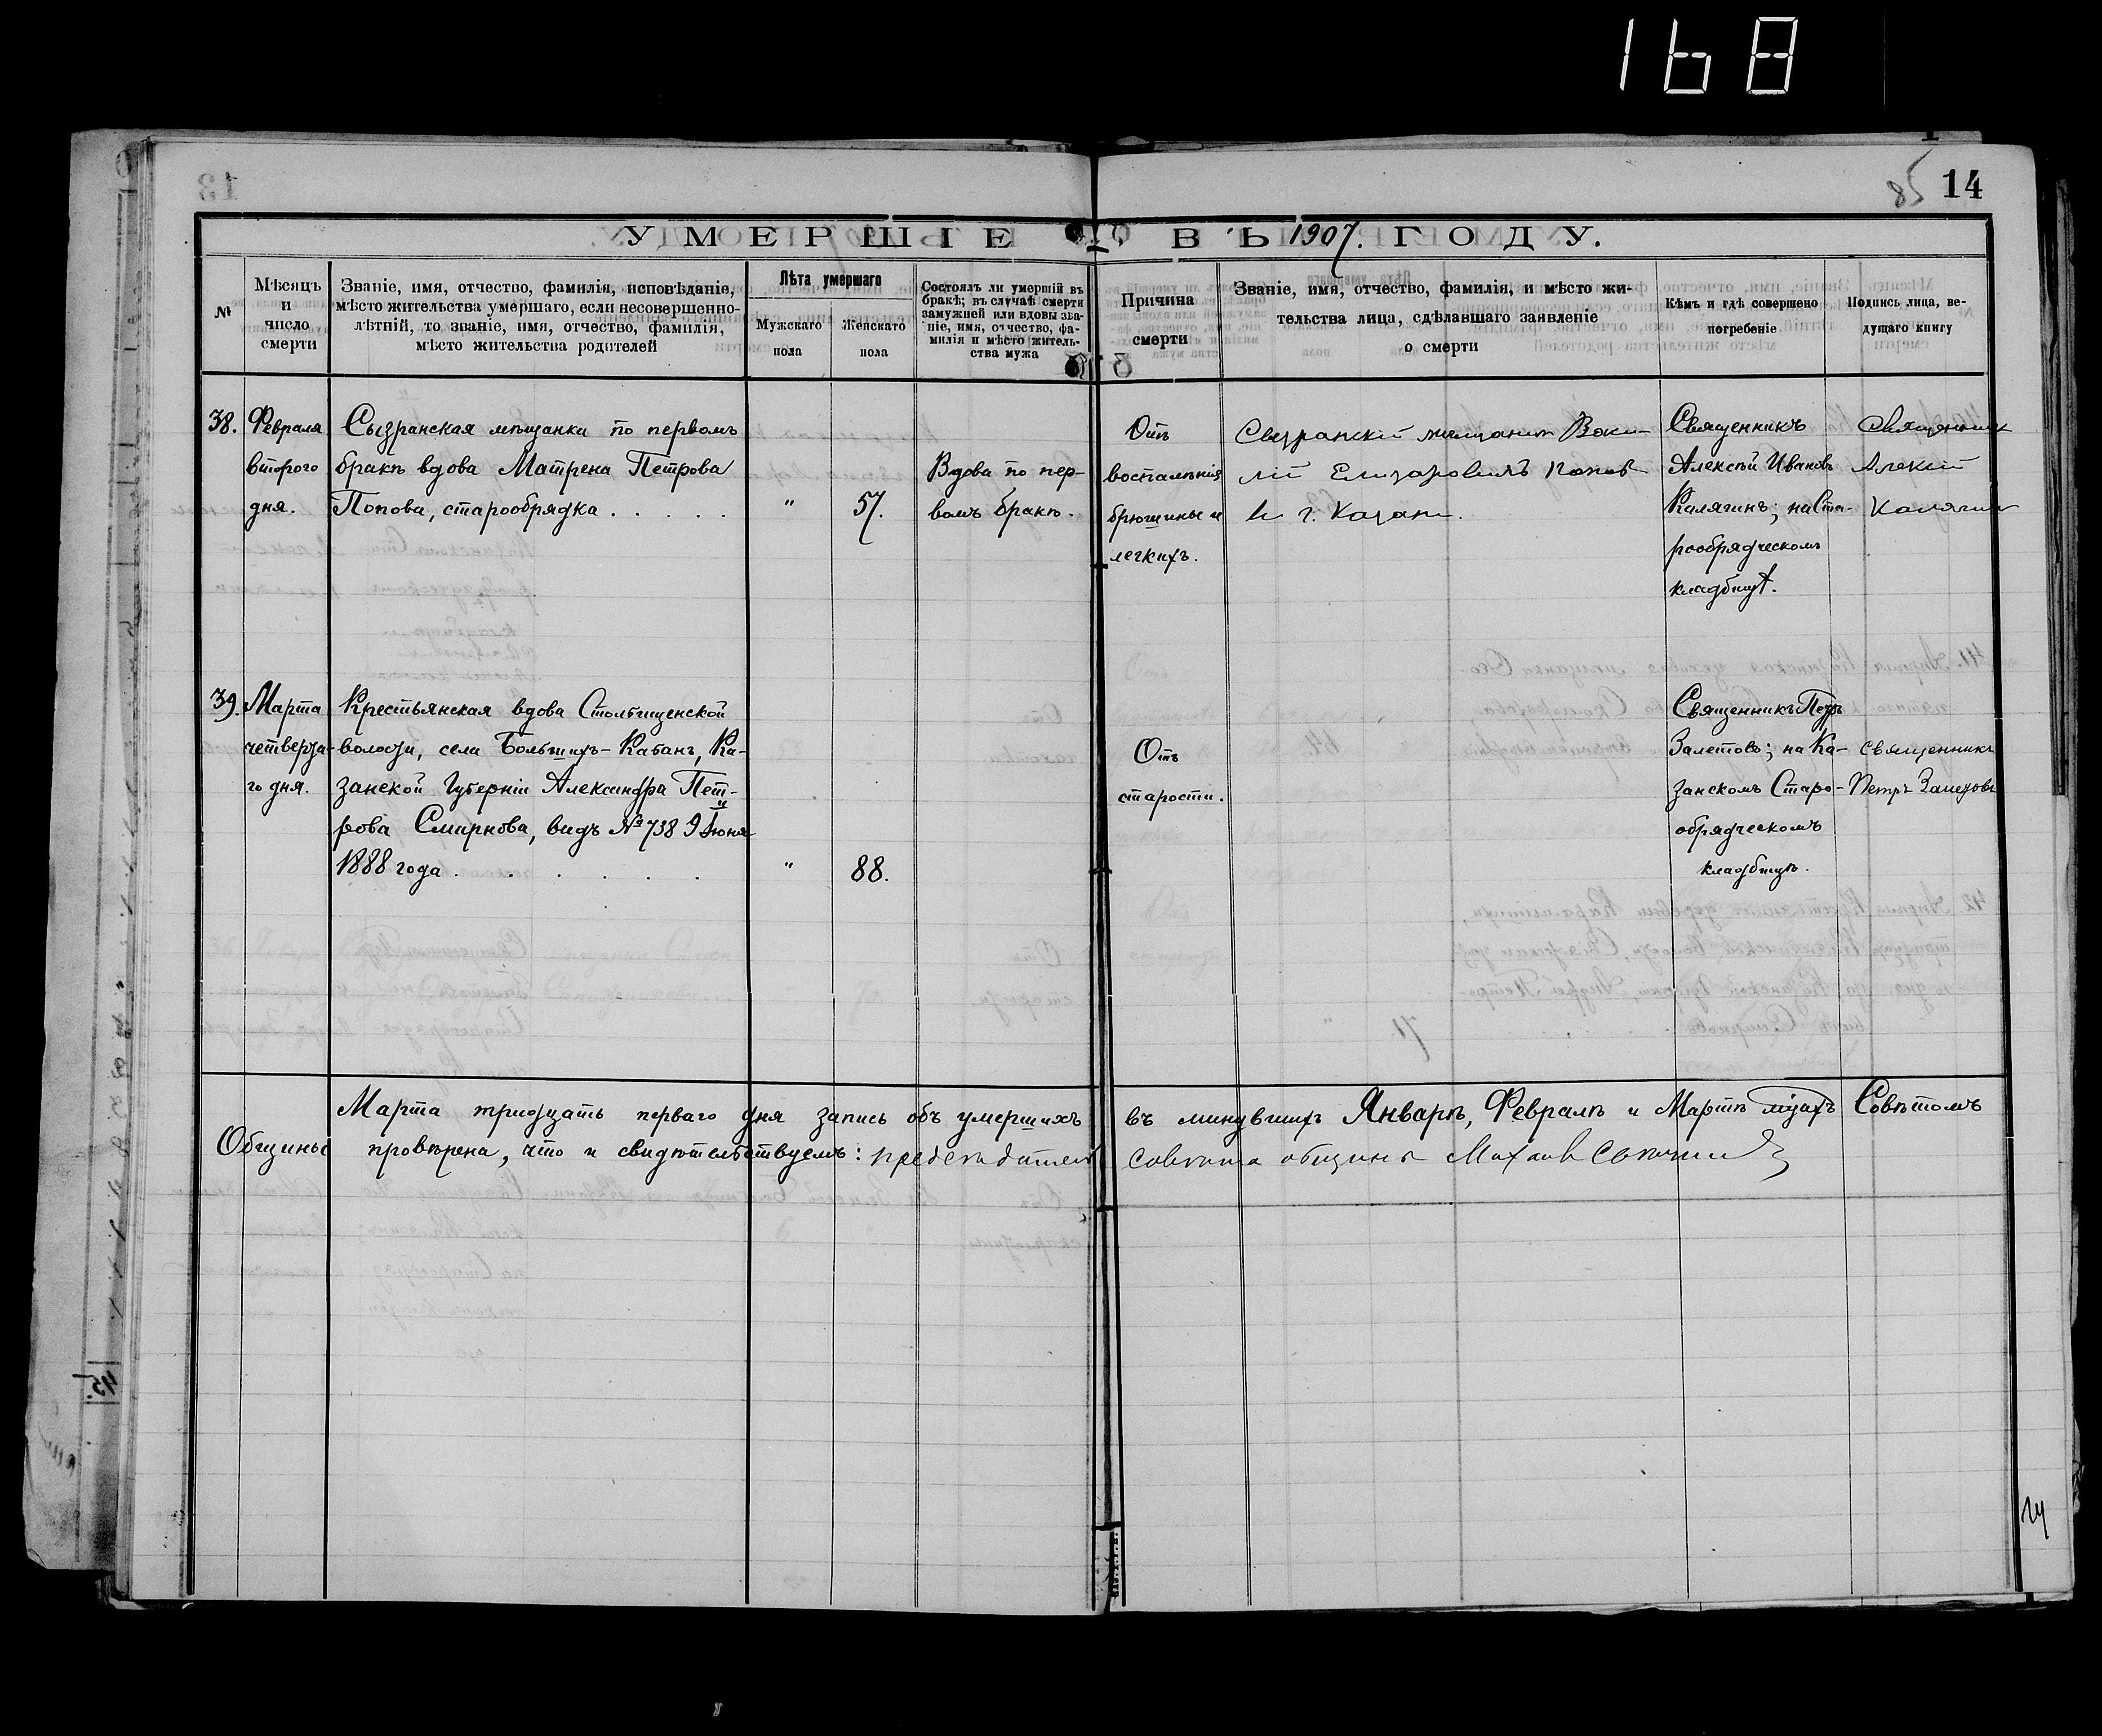 168
85 14
УМЕРШІЕ ВЪ 1907. ГОДУ.
№
Мѣсяцъ
и
число
смерти
Званіе, имя, отчество, фамилія, исповѣданіе,
мѣсто жительства умершаго, если несовершенно-
лѣтній, то званіе, имя, отчество, фамилія,
мѣсто жительства родителей
Лѣта умершаго
Мужскаго
пола
Женскаго
пола
Состоялъ ли умершій въ
бракѣ; въ случаѣ смерти
замужней или вдовы зва-
ніе, имя, отчество, фа-
милія и мѣсто житель-
ства мужа
Причина
смерти
Званіе, имя, отчество, фамилія, и мѣсто жи-
тельства лица, сдѣлавшаго заявленіе
о смерти
Кѣмъ и гдѣ совершено
погребеніе
Подпись лица, ве-
дущаго книгу
38.
Февраля
второго
дня.
Сызранская мѣщанка по первомъ
бракѣ вдова Матрена Петрова
Попова, старообрядка . . . . .
"
57.
Вдова по пер-
вомъ бракѣ.
Отъ
воспаленія
брюшины и
легкихъ.
Сызранскій мещанин
Елизаровичъ Попов
г. Казани.
Священникъ
Алексѣй Ивановъ
Калягинъ; на Ста-
рообрядческомъ
кладбищѣ.
Священник
Алексій
Калягин
39.
Марта
четверта-
го дня.
Крестьянская вдова Столбищенской
волости, села Большихъ-Кабанъ, Ка-
занской Губерніи Александра Пет-
рова Смирнова, видъ № 738 9 Іюня
1888 года . . . . . .
"
88.
Отъ
старости.
Священникъ Петръ
Залетовъ; на Ка-
занскомъ Старо-
обрядческомъ
кладбищѣ.
Священникъ
Петръ Залетовъ
Марта тридцать перваго дня запись объ умершихъ въ минувшихъ Январѣ, Февралѣ и Мартѣ мѣсяцахъ Совѣтомъ
Общины провѣрена, что и свидѣтельствуемъ: председатель совета общины
14